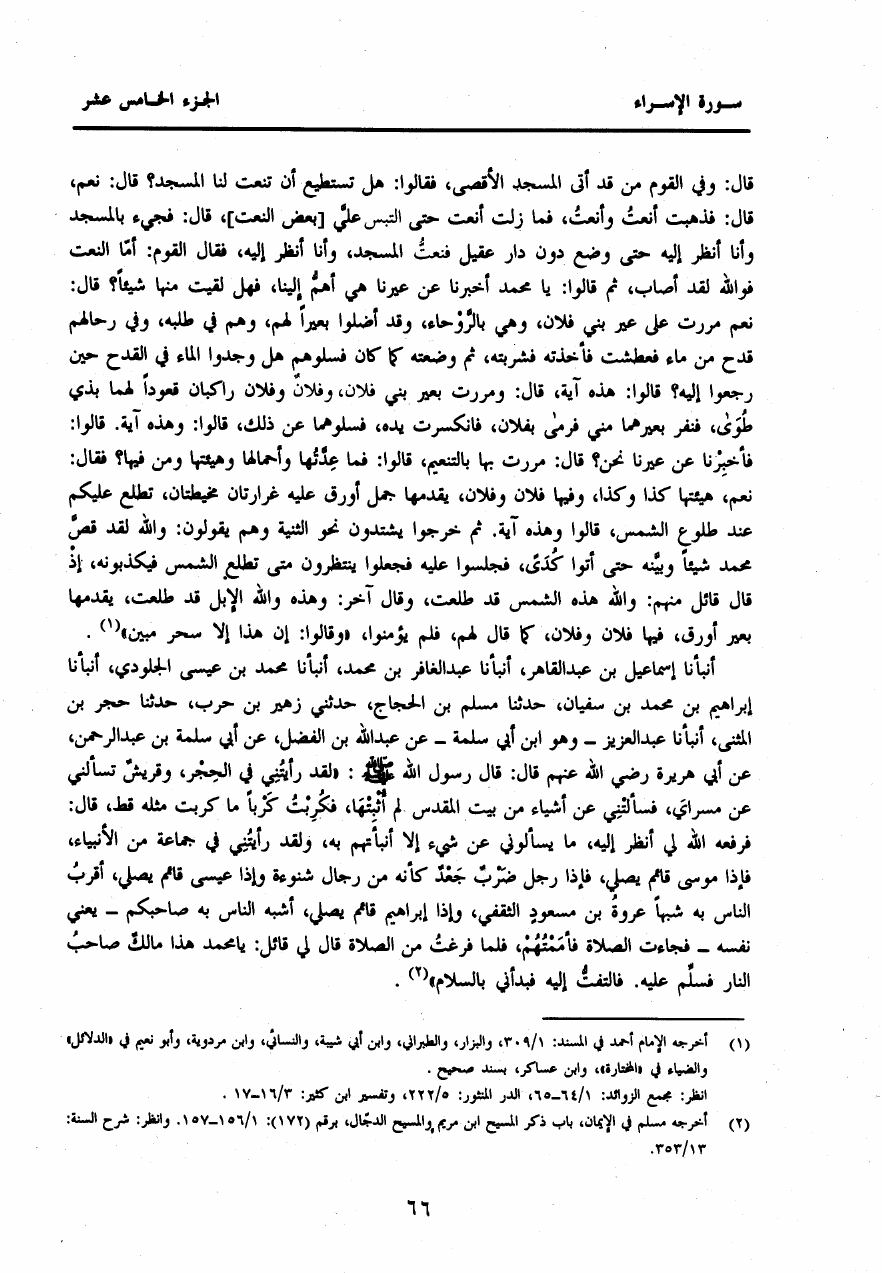 سـورة الإسـراء
الجـزء الخـامس عشر
قال: وفي القوم من قد أتى المسجد الأقصى، فقالوا: هل تستطيع أن تنعت لنا المسجد؟ قال: نعم،
قال: فذهبت أنعتُ وأنعتُ، فما زلت أنعت حتى التبس عليَّ [بعض النعت]، قال: فجيء بالمسجد
وأنا أنظر إليه حتى وضع دون دار عقيل فنعتُّ المسجد، وأنا أنظر إليه، فقال القوم: أمّا النعت
فوالله لقد أصاب، ثم قالوا: يا محمد أخبرنا عن عيرنا هي أهمُّ إلينا، فهل لقيت منها شيئاً؟ قال:
نعم مررت على عير بني فلان، وهي بالرَّوْحاء، وقد أضلوا بعيراً لهم، وهم في طلبه، وفي رحالهم
قدح من ماء فعطشت فأخذته فشربته، ثم وضعته كما كان فسلوهم هل وجدوا الماء في القدح حين
رجعوا إليه؟ قالوا: هذه آية، قال: ومررت بعير بني فلان، وفلانٌ وفلان راكبان قعوداً لهما بذي
طُوَىٰ، فنفر بعيرهما مني فرمىٰ بفلان، فانكسرت يده، فسلوهما عن ذلك، قالوا: وهذه آية. قالوا:
فأخبِرْنا عن عيرنا نحن؟ قال: مررت بها بالتنعيم، قالوا: فما عِدَّتُها وأحمالها وهيئتها ومن فيها؟ فقال:
نعم، هيئتها كذا وكذا، وفيها فلان وفلان، يقدمها جمل أورق عليه غرارتان مخيطتان، تطلع عليكم
عند طلوع الشمس، قالوا وهذه آية. ثم خرجوا يشتدون نحو الثنية وهم يقولون: والله لقد قصَّ
محمد شيئاً وبيَّنه حتى أتوا كُدَىً، فجلسوا عليه فجعلوا ينتظرون متى تطلع الشمس فيكذبونه، إذْ
قال قائل منهم: والله هذه الشمس قد طلعت، وقال آخر: وهذه والله الإبل قد طلعت، يقدمها
بعير أورق، فيها فلان وفلان، كما قال لهم، فلم يؤمنوا، «وقالوا: إن هذا إلا سحر مبين»(١) .
أنبأنا إسماعيل بن عبدالقاهر، أنبأنا عبدالغافر بن محمد، أنبأنا محمد بن عيسى الجلودي، أنبأنا
إبراهيم بن محمد بن سفيان، حدثنا مسلم بن الحجاج، حدثني زهير بن حرب، حدثنا حجر بن
المثنى، أنبأنا عبدالعزيز ـ وهو ابن أبي سلمة ـ عن عبدالله بن الفضل، عن أبي سلمة بن عبدالرحمن،
عن أبي هريرة رضي الله عنهم قال: قال رسول الله ﷺ : «لقد رأيتُنِي في الحِجْر، وقريشٌ تسألني
عن مسرايَ، فسألتْنِي عن أشياء من بيت المقدس لم أُثْبِتْهَا، فكُرِبْتُ كَرْباً ما كربت مثله قط، قال:
فرفعه الله لي أنظر إليه، ما يسألوني عن شيء إلا أنبأتهم به، ولقد رأيتُنِي في جماعة من الأنبياء،
فإذا موسى قائم يصلي، فإذا رجل ضَرْبٌ جَعْدٌ كأنه من رجال شنوءة وإذا عيسى قائم يصلي، أقربُ
الناس به شبهاً عروةُ بن مسعودٍ الثقفي، وإذا إبراهيم قائم يصلي، أشبه الناس به صاحبكم ـ يعني
نفسه ـ فجاءت الصلاة فأمَمْتُهُمْ، فلما فرغتُ من الصلاة قال لي قائل: يامحمد هذا مالكٌ صاحبُ
النار فسلِّم عليه. فالتفتُّ إليه فبدأني بالسلام»(٢) .
(١) أخرجه الإمام أحمد في المسند: ٣٠٩/١، والبزار، والطبراني، وابن أبي شيبة، والنسائي، وابن مردوية، وأبو نعيم في «الدلائل»
والضياء في «المختارة»، وابن عساكر، بسند صحيح .
انظر: مجمع الزوائد: ٦٤/١ـ٦٥، الدر المنثور: ٢٢٢/٥، وتفسير ابن كثير: ١٦/٣ـ١٧ .
(٢) أخرجه مسلم في الإيمان، باب ذكر المسيح ابن مريم والمسيح الدجّال، برقم (١٧٢): ١٥٦/١ـ١٥٧. وانظر: شرح السنة:
٣٥٣/١٣.
٦٦